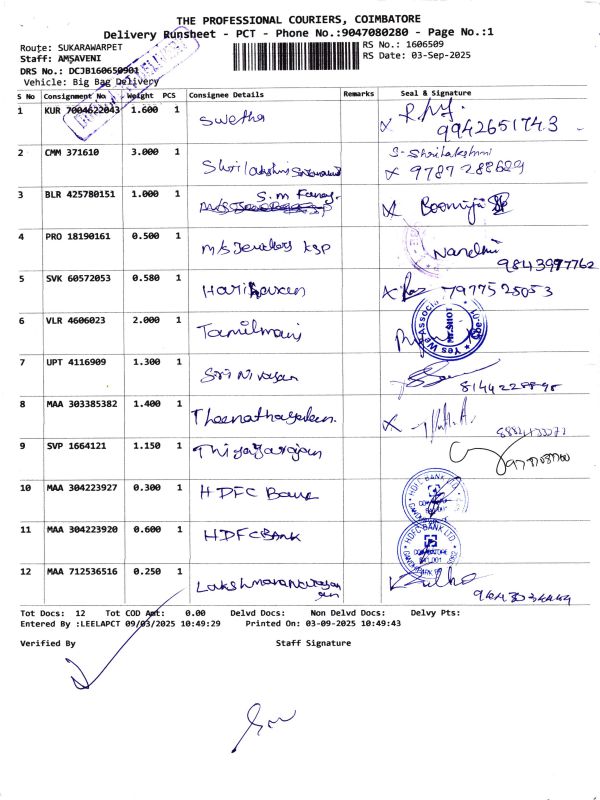 THE PROFESSIONAL COURIERS, COIMBATORE
Delivery Runsheet - PCT - Phone No.:9047080280 - Page No.:1
Route: SUKARAWARPET
RS No.: 1606509
Staff: AMSAVENI
RS Date: 03-Sep-2025
DRS No.: DCJB160650901
Vehicle: Big Bag Delivery
S No Consignment No Weight PCS Consignee Details Remarks Seal & Signature
1 KUR 7004622043 1.600 1 Swetha
9942651743
2 CMM 371610 3.000 1 Shrilakshmi
S. Shrilakshmi
9787288689
3 BLR 425780151 1.000 1 S.m Fancy.
Boomija
4 PRO 18190161 0.500 1 M/s Jewellers KSP
Nandhu
9843997762
5 SVK 60572053 0.580 1 Hariharan
7977525053
6 VLR 4606023 2.000 1 Tamilmani
Yes We Associa
7 UPT 4116909 1.300 1 Srinivasan
8 MAA 303385382 1.400 1
9 SVP 1664121 1.150 1 Thiyagarajan
10 MAA 304223927 0.300 1 HDFC Bank
HDFC BANK
11 MAA 304223920 0.600 1 HDFC BANK
HDFC BANK LTD
COIMBATORE
12 MAA 712536516 0.250 1 Lakshmanan
Tot Docs: 12 Tot COD Amt: 0.00 Delvd Docs: Non Delvd Docs: Delvy Pts:
Entered By :LEELAPCT 09/03/2025 10:49:29 Printed On: 03-09-2025 10:49:43
Verified By Staff Signature